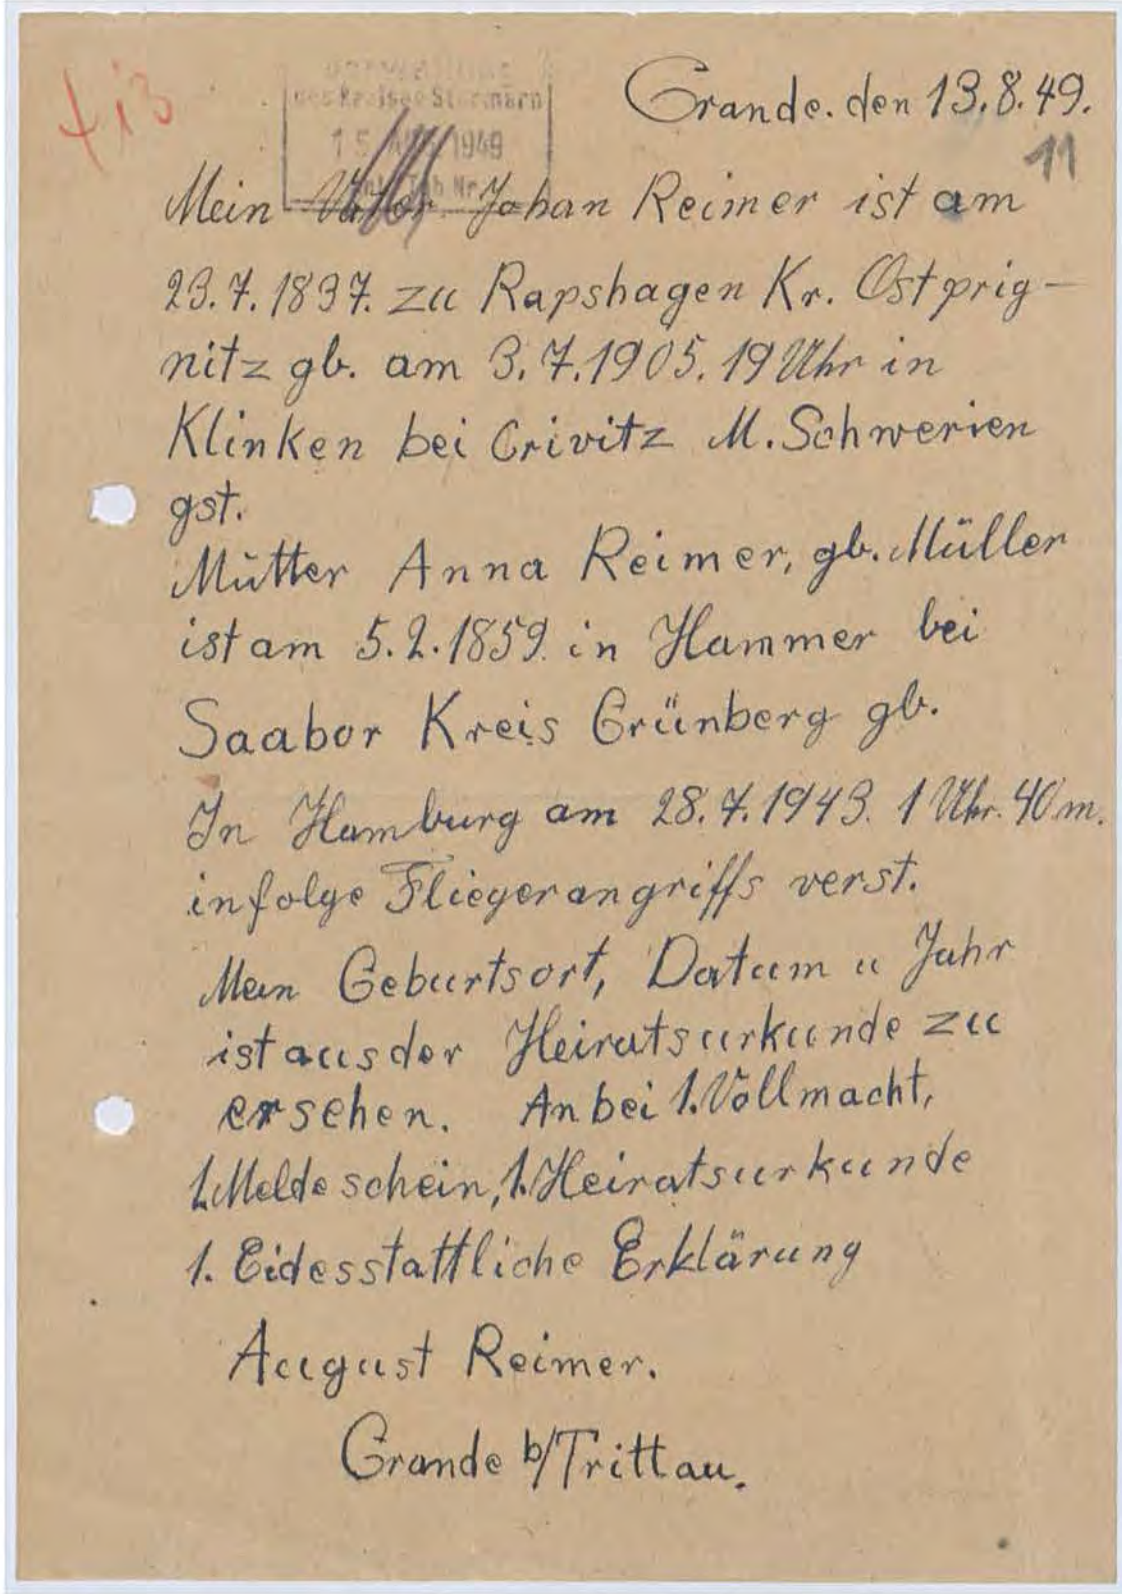 4 i 3
Verwaltung
des Kreises Stormarn
15. AUG. 1949
Grande. den 13.8.49.
11
Mein Vatter Johan Reimer ist am
23.7.1837. zu Rapshagen Kr. Ostprig-
nitz gb. am 3.7.1905. 19 Uhr in
Klinken bei Crivitz M. Schwerien
gst.
Mutter Anna Reimer, gb. Müller
ist am 5.2.1859. in Hammer bei
Saabor Kreis Grünberg gb.
In Hamburg am 28.7.1943. 1 Uhr. 40 m.
infolge Fliegerangriffs verst.
Mein Geburtsort, Datum u Jahr
ist aus der Heiratsurkunde zu
ersehen. Anbei 1. Vollmacht,
1. Meldeschein, 1. Heiratsurkunde
1. Eidesstattliche Erklärung
August Reimer.
Grande b/Trittau.